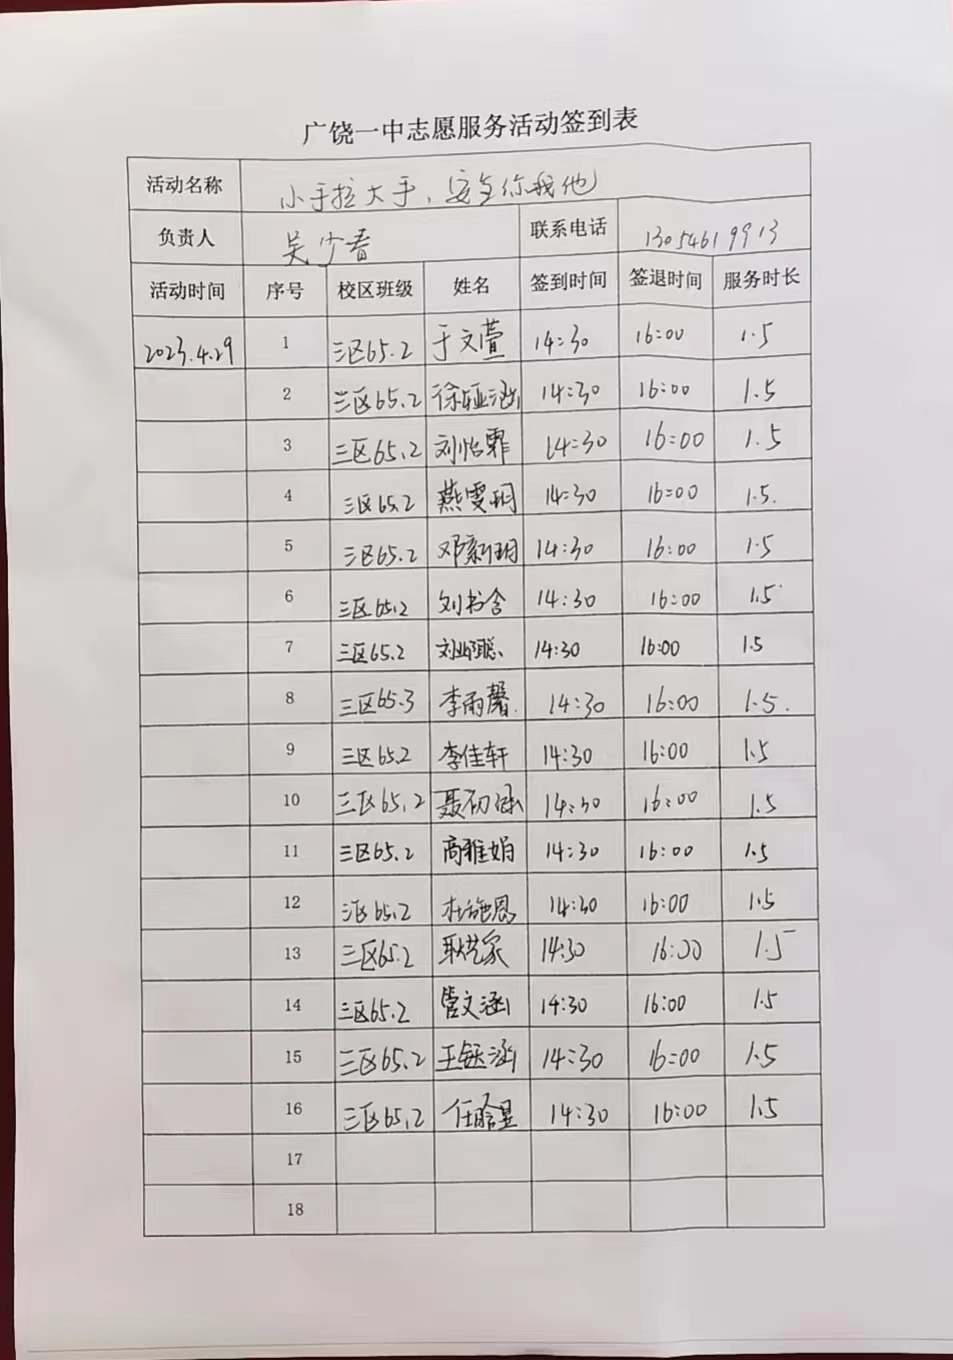 广饶一中志愿服务活动签到表
活动名称 小手拉大手，安全你我他
负责人 吴少春 联系电话 13054619913
活动时间 序号 校区班级 姓名 签到时间 签退时间 服务时长
2023.4.29 1 三区65.2 于文萱 14:30 16:00 1.5
2 三区65.2 徐娅涵 14:30 16:00 1.5
3 三区65.2 刘怡霏 14:30 16:00 1.5
4 三区65.2 燕雯玥 14:30 16:00 1.5.
5 三区65.2 邓新玥 14:30 16:00 1.5
6 三区65.2 刘书含 14:30 16:00 1.5
7 三区65.2 14:30 16:00 1.5
8 三区65.3 李雨馨. 14:30 16:00 1.5.
9 三区65.2 李佳轩 14:30 16:00 1.5
10 三区65.2 聂初涵 14:30 16:00 1.5
11 三区65.2 高雅娟 14:30 16:00 1.5
12 三区65.2 杜施恩 14:30 16:00 1.5
13 三区65.2 14:30 16:00 1.5
14 三区65.2 管文涵 14:30 16:00 1.5
15 三区65.2 王钰涵 14:30 16:00 1.5
16 三区65.2 任晗昱 14:30 16:00 1.5
17
18